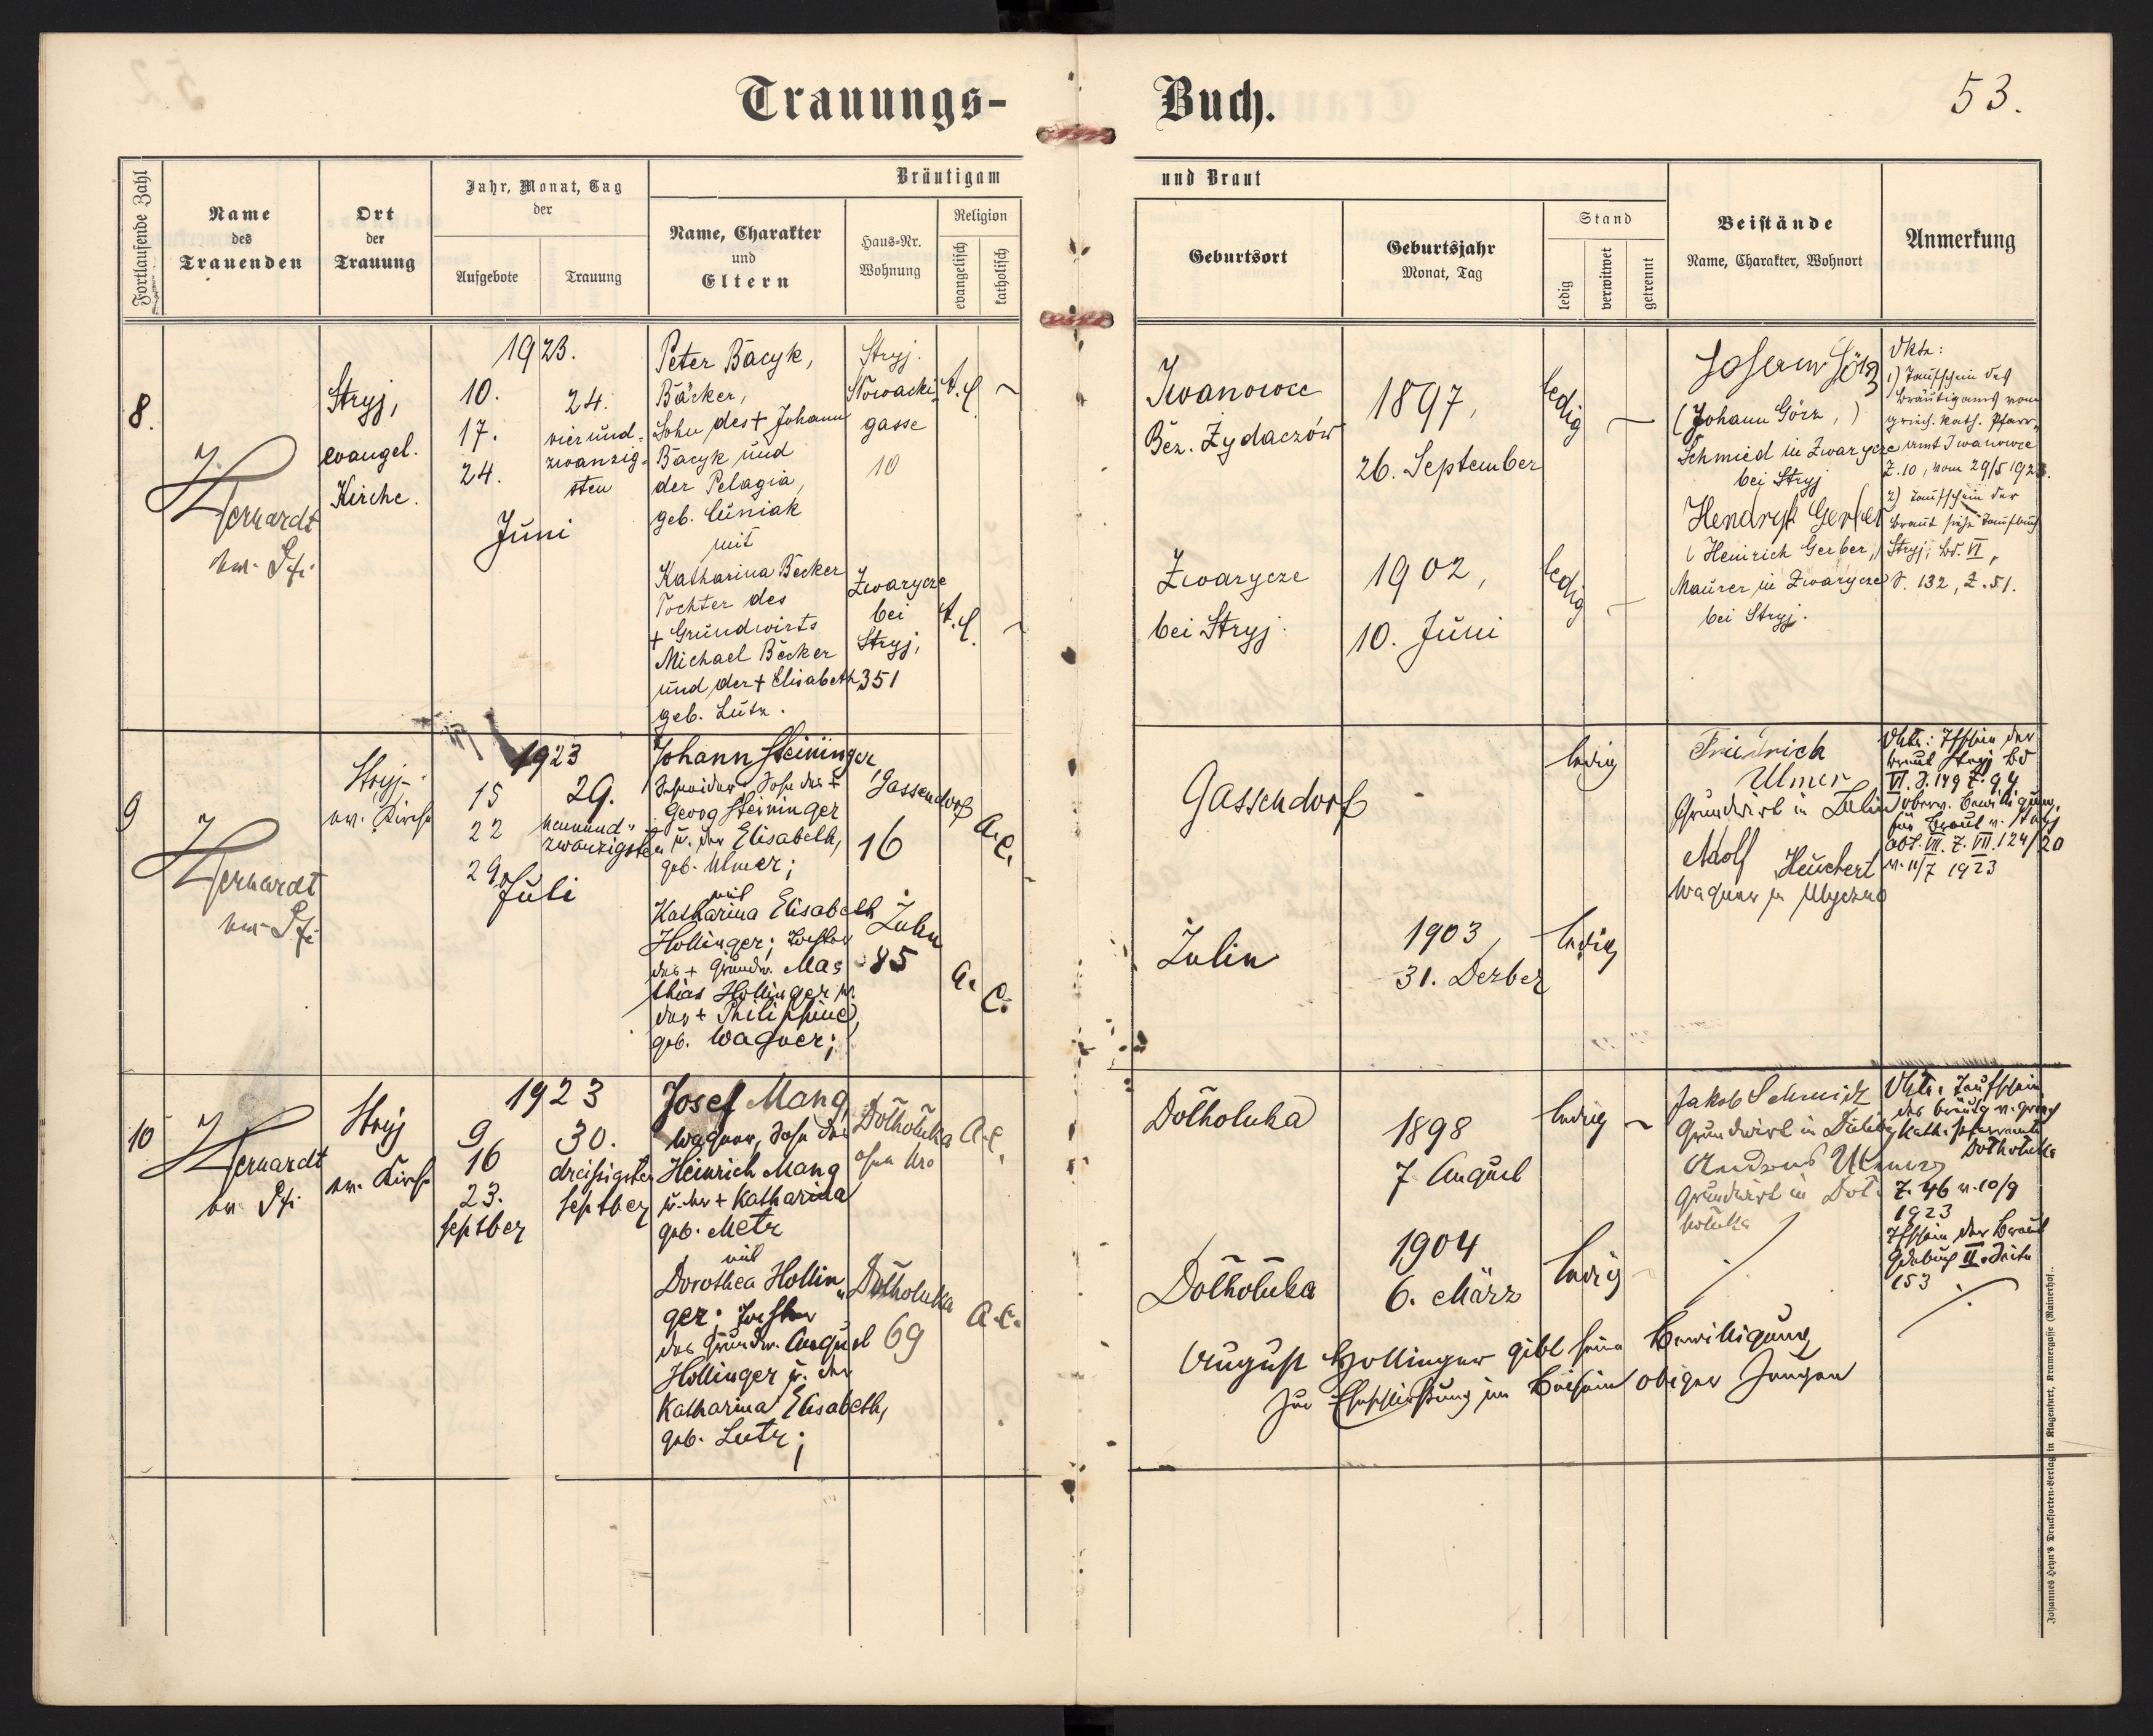 Trauungs-
Buch.
53.
Fortlaufende Zahl
Name
des
Trauenden
Ort
der
Trauung
Jahr, Monat, Tag
der
Aufgebote
Trauung
Bräutigam
Name, Charakter
und
Eltern
Haus-Nr.
Wohnung
Religion
evangelisch
katholisch
und Braut
Geburtsort
Geburtsjahr
Monat, Tag
Stand
ledig
verwitwet
getrennt
Beistände
Name, Charakter, Wohnort
Anmerkung
8.
Stryj,
evangel.
Kirche.
1923.
10.
17.
24.
24.
vierund-
zwanzig-
sten
Juni
Peter Bacyk,
Bäcker,
Sohn des + Johann
Bacyk und
der Pelagia,
geb. Cuniak
mit
Katharina Becker
Tochter des
+ Grundwirts
Michael Becker
und der + Elisabeth
geb. Lutz.
Stryj.
Slowacki-
gasse
10
Zwarycze
bei
Stryj,
351
Iwanowce
Bez. Zydaczów
1897,
26. September
ledig
Zwarycze
bei Stryj.
1902,
10. Juni
ledig
(Johann Görz,)
Schmied in Zwarycze
bei Stryj
Hendryk Gerber
(Heinrich Gerber,)
Maurer in Zwarycze
bei Stryj.
1) Taufschein des
Bräutigams vom
griech. kath. Pfarr-
amt Iwanowce
Z. 10, vom 29/5 1923.
2) Taufschein der
Braut siehe Taufbuch
Stryj, Bd. VI,
S. 132, Z. 51.
9
Stryj-
ev. Kirche
1923
15
22
29.
29.
neunund-
zwanzigsten
Juli
Johann Steininger,
Schneider, Sohn des +
Georg Steininger
u. der Elisabeth,
geb. Ulmer;
mit
Katharina Elisabeth
Hollinger; Tochter
des + Grundw. Mat-
thias Hollinger u.
der + Philippine,
geb. Wagner;
Gassendorf
16
A. C.
Zulin
85
A. C.
Gassendorf
ledig
Zulin
1903,
31. Dezber
ledig
Friedrich
Ulmer
Grundwirt in Zulin
Adolf Heuchert
Wagner in Ulyczno
Braut Stryj Bd
VI. S. 149 Z. 94
v. 11/7 1923
10
Stryj
ev. Kirche
1923
9
16
23.
Septber
30.
dreissigsten
Septber
Josef Mang,
Wagner, Sohn des
Heinrich Mang
u. der + Katharina
geb. Metz
mit
Dorothea Hollin-
ger; Tochter
des Grundw. August
Hollinger u. der
Katharina Elisabeth,
geb. Lutz;
Dolholuka
ohne Nro
A. C.
Dolholuka
69
A. C.
Dolholuka
1898
7. August
ledig
Dolholuka
1904
6. März
ledig
Jakob Schmidt
Andreas Ulmer
Grundwirt in Dol-
holuka
Dolholuka
Z. 46 v. 10/9
1923
Tfschein der Braut
153
August Hollinger gibt seine Bewilligung
zur Eheschließung im Beisein obiger Zeugen
Johannes Heyn's Drucksorten-Verlag in Klagenfurt, Kramergasse (Rainerhof).